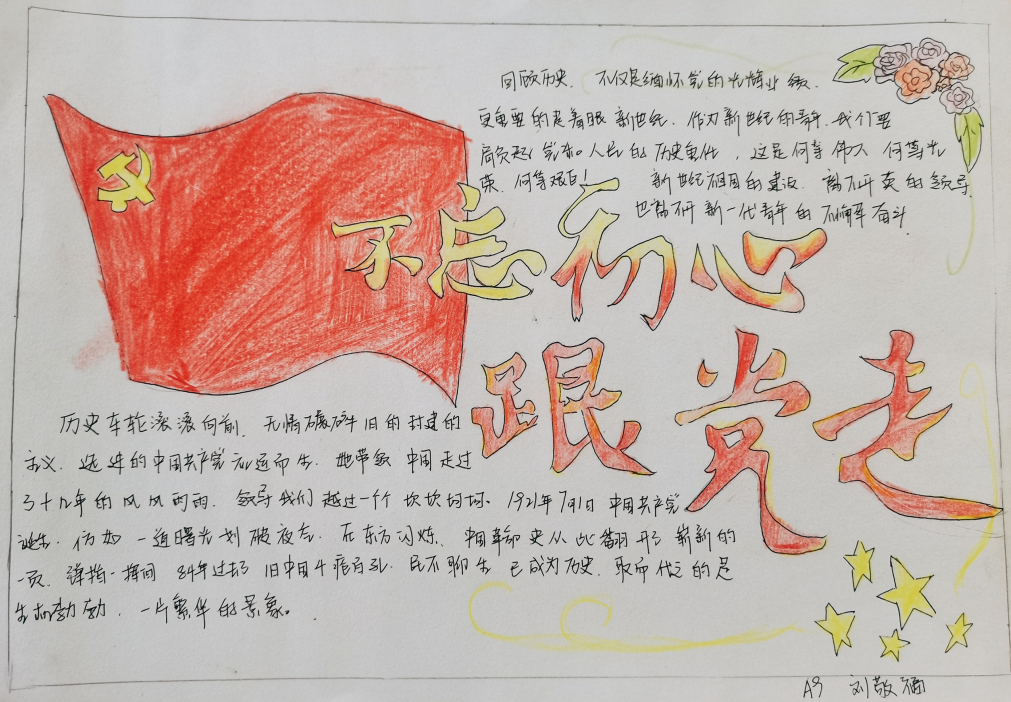 回顾历史，不仅是缅怀党的光辉业绩，
更重要的是着眼新世纪，作为新世纪的青年，我们要
肩负起党和人民的历史重任，这是何等伟大 何等光
荣，何等艰巨！ 新世纪祖国的建设，离不开党的领导，
也离不开新一代青年的不懈奋斗。
不忘初心
跟党走
历史车轮滚滚向前，无情碾碎旧的封建的
主义，先进的中国共产党应运而生，她带领中国走过
几年的风风雨雨，领导我们越过一个坎坎坷坷。1921年7月1日中国共产党
诞生，仿如一道曙光划破夜空，在东方闪烁，中国革命史从此翻开崭新的
一页，弹指一挥间 84年过去了 旧中国千疮百孔，民不聊生已成为历史，取而代之的是
生机勃勃，一片繁华的景象。
刘敬